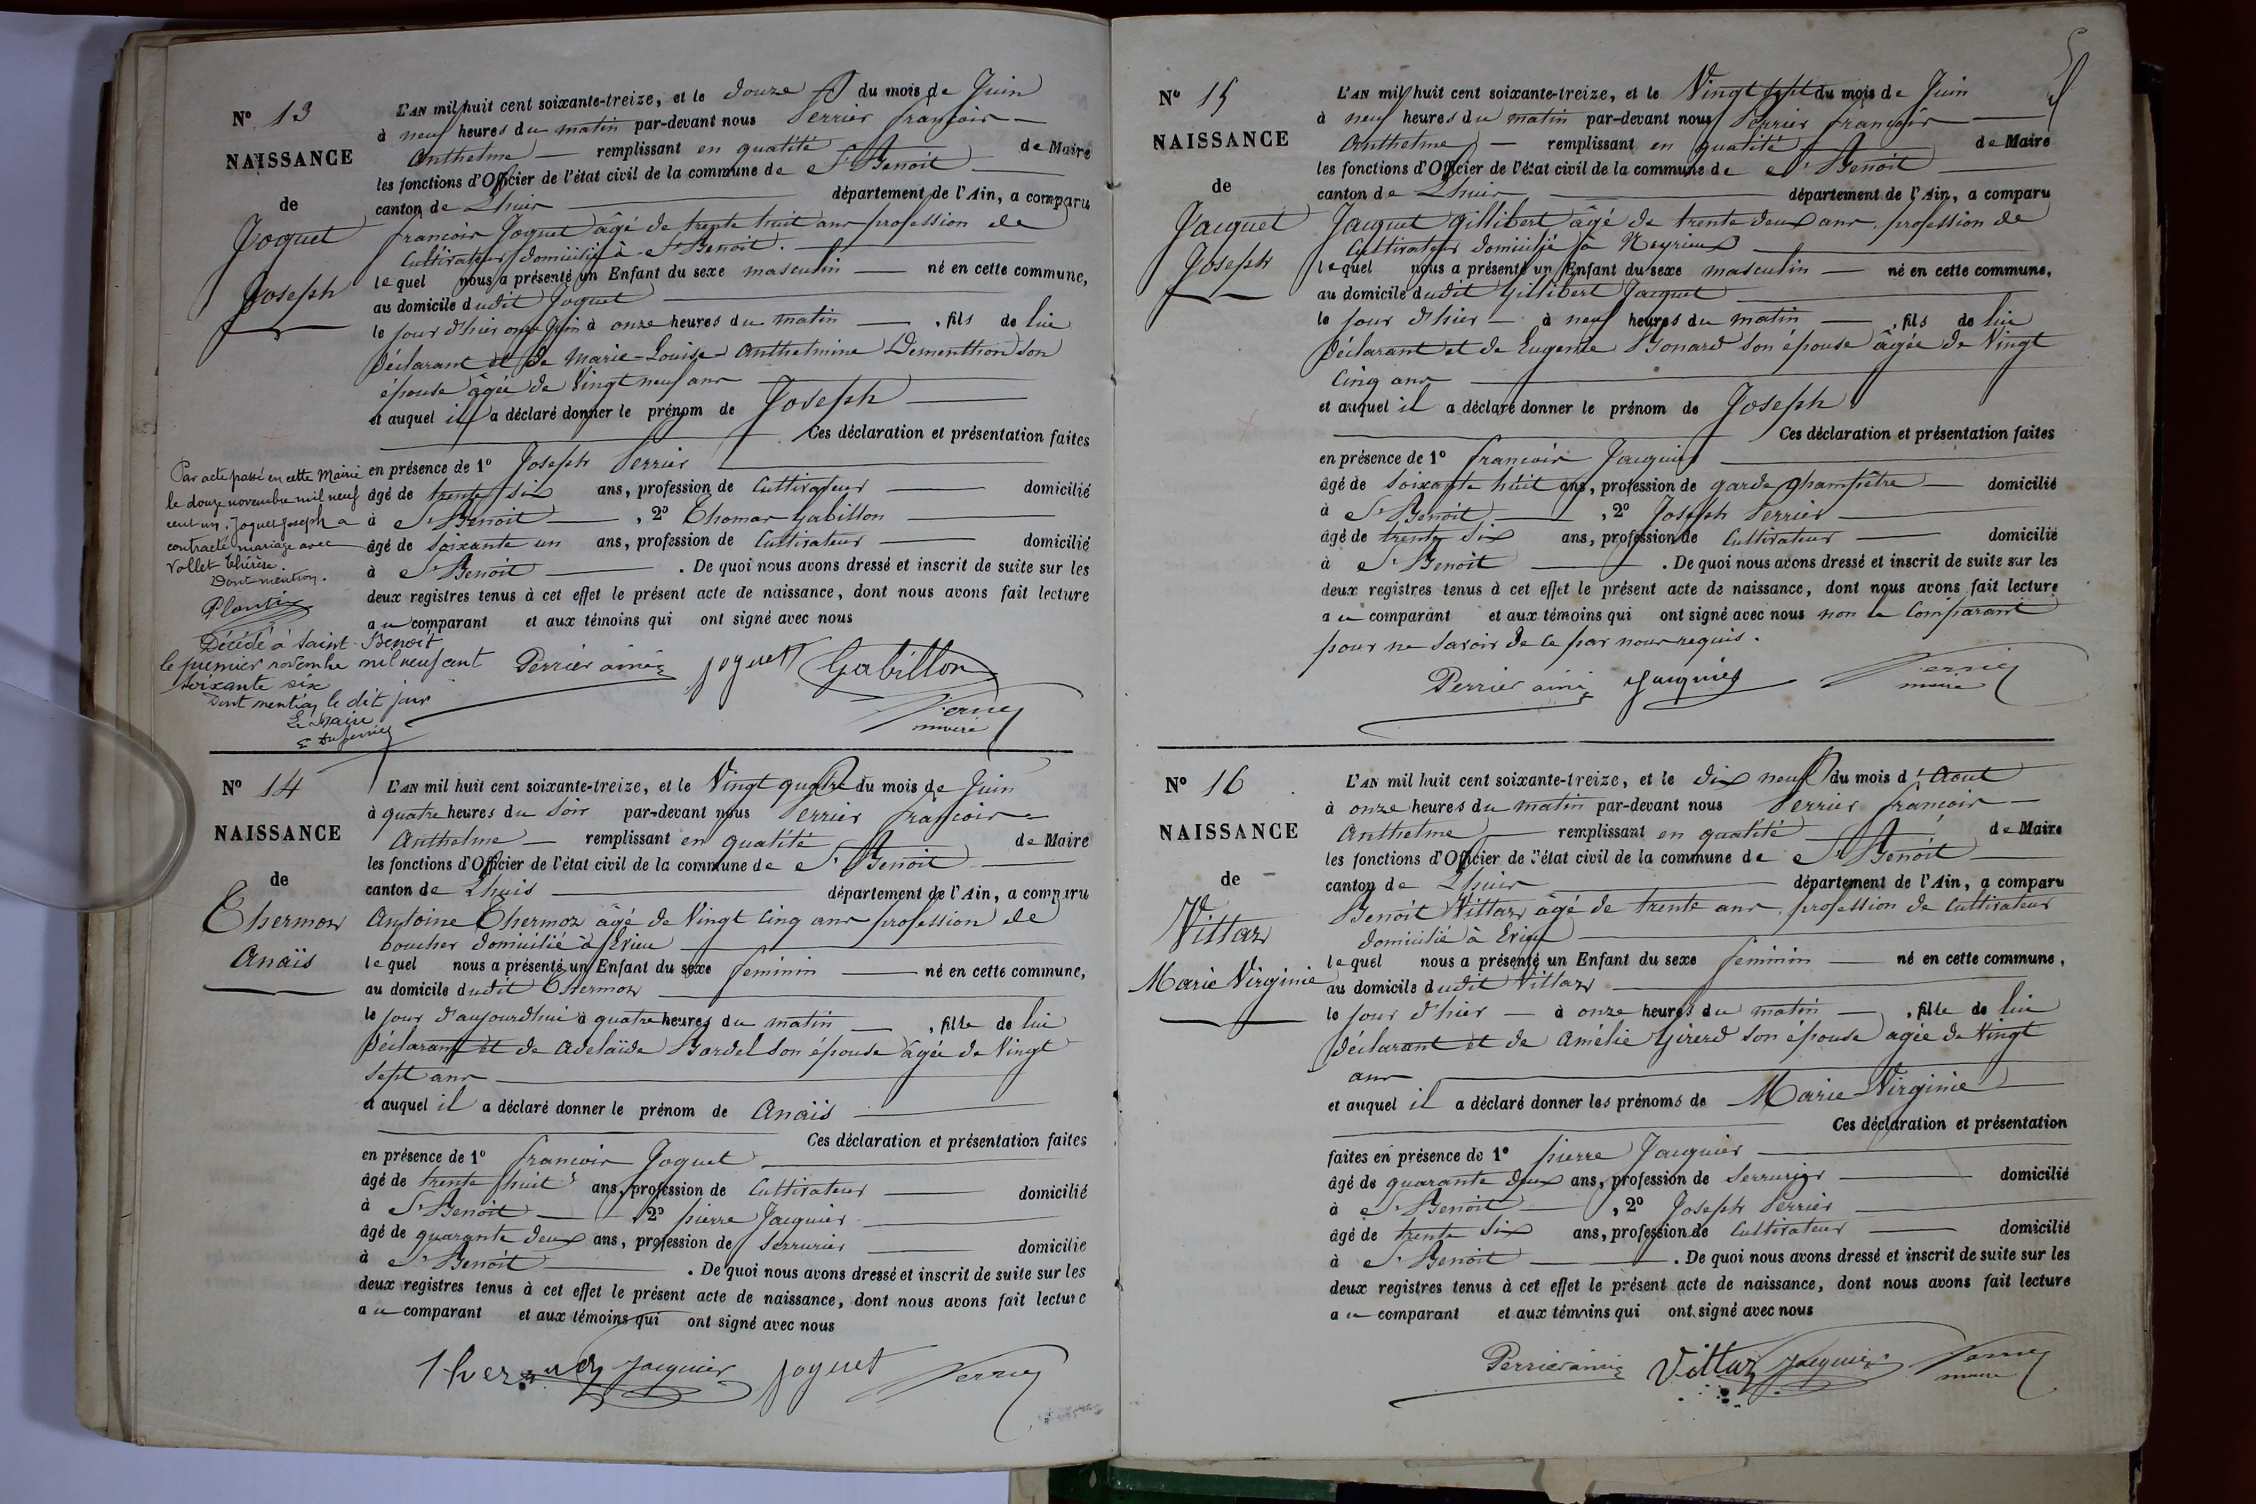 Nº 13
NAISSANCE
de
Joguet
Joseph
L'AN mil huit cent soixante-treize, et le douze du mois de Juin
à neuf heures du matin par-devant nous Perrier françois
Anthelme remplissant en qualité de Maire
les fonctions d'Officier de l'état civil de la commune de St Benoit
canton de Lhuis département de l'Ain, a comparu
françois Joguet âgé de trente huit ans profession de
Cultivateur domicilié à St Benoit.
lequel nous a présenté un Enfant du sexe masculin né en cette commune,
au domicile dudit Joguet
le jour d'hier onze Juin à onze heures du matin, fils de lui
déclarant et de Marie-Louise Anthelmine Dementhon son
épouse âgée de Vingt neuf ans
et auquel il a déclaré donner le prénom de Joseph
Ces déclaration et présentation faites
en présence de 1º Joseph Perrier
âgé de trente six ans, profession de Cultivateur domicilié
à St Benoit, 2º Thomas Gabillon
âgé de soixante un ans, profession de Cultivateur domicilié
à St Benoit. De quoi nous avons dressé et inscrit de suite sur les
deux registres tenus à cet effet le présent acte de naissance, dont nous avons fait lecture
au comparant et aux témoins qui ont signé avec nous
Perrier ainé Joguet Gabillon
Perrier
maire
Par acte passé en cette Mairie
le douze novembre mil neuf
cent un, Joguet Joseph a
contracté mariage avec
Vollet Thérèse.
Dont mention.
Plantin
Décédé à Saint-Benoit
le premier novembre mil neuf cent
soixante six
Dont mention le dit jour
Le Maire
Nº 14
NAISSANCE
de
Thermoz
Anaïs
L'AN mil huit cent soixante-treize, et le Vingt quatre du mois de Juin
à quatre heures du soir par-devant nous Perrier françois
Anthelme remplissant en qualité de Maire
les fonctions d'Officier de l'état civil de la commune de St Benoit
canton de Lhuis département de l'Ain, a comparu
Antoine Thermoz âgé de Vingt cinq ans profession de
boucher domicilié à Evieu
lequel nous a présenté un Enfant du sexe feminin né en cette commune,
au domicile dudit Thermoz
le jour d'aujourdhui à quatre heures du matin, fille de lui
déclarant et de Adelaïde Bordel son épouse âgée de Vingt
sept ans
et auquel il a déclaré donner le prénom de Anaïs
Ces déclaration et présentation faites
en présence de 1º françois Joguet
âgé de trente huit ans, profession de Cultivateur domicilié
à St Benoit 2º pierre Jacquier
âgé de quarante deux ans, profession de serrurier domicilié
à St Benoit. De quoi nous avons dressé et inscrit de suite sur les
deux registres tenus à cet effet le présent acte de naissance, dont nous avons fait lecture
au comparant et aux témoins qui ont signé avec nous
Thermoz Jacquier Joguet Perrier
Nº 15
NAISSANCE
de
Jacquet
Joseph
L'AN mil huit cent soixante-treize, et le Vingt sept du mois de Juin
à neuf heures du matin par-devant nous Perrier françois
Anthelme remplissant en qualité de Maire
les fonctions d'Officier de l'état civil de la commune de St Benoit
canton de Lhuis département de l'Ain, a comparu
Jacquet Gillibert âgé de trente deux ans profession de
Cultivateur domicilié à Neyrieux
lequel nous a présenté un Enfant du sexe masculin né en cette commune,
au domicile dudit Gillibert Jacquet
le jour d'hier à neuf heures du matin, fils de lui
déclarant et de Eugenie Bonard son épouse âgée de Vingt
cinq ans
et auquel il a déclaré donner le prénom de Joseph
Ces déclaration et présentation faites
en présence de 1º françois Jacquier
âgé de soixante huit ans, profession de garde champêtre domicilié
à St Benoit, 2º Joseph Perrier
âgé de trente six ans, profession de Cultivateur domicilié
à St Benoit. De quoi nous avons dressé et inscrit de suite sur les
deux registres tenus à cet effet le présent acte de naissance, dont nous avons fait lecture
au comparant et aux témoins qui ont signé avec nous non le Comparant
pour ne savoir de ce par nous requis.
Perrier ainé Jacquier Perrier
maire
Nº 16
NAISSANCE
de
Vittaz
Marie Virginie
L'AN mil huit cent soixante-treize, et le dix neuf du mois d'Aout
à onze heures du matin par-devant nous Perrier françois
Anthelme remplissant en qualité de Maire
les fonctions d'Officier de l'état civil de la commune de St Benoit
canton de Lhuis département de l'Ain, a comparu
Benoit Vittaz âgé de trente ans profession de cultivateur
domicilié à Evieu
lequel nous a présenté un Enfant du sexe feminin né en cette commune,
au domicile dudit Vittaz
le jour d'hier à onze heures du matin, fille de lui
déclarant et de Amélie Girerd son épouse agée de Vingt
ans
et auquel il a déclaré donner les prénoms de Marie Virginie
Ces déclaration et présentation
faites en présence de 1º pierre Jacquier
âgé de quarante deux ans, profession de serrurier domicilié
à St Benoit, 2º Joseph Perrier
âgé de trente six ans, profession de Cultivateur domicilié
à St Benoit. De quoi nous avons dressé et inscrit de suite sur les
deux registres tenus à cet effet le présent acte de naissance, dont nous avons fait lecture
au comparant et aux témoins qui ont signé avec nous
Perrier ainé Vittaz Jacquier Perrier
maire